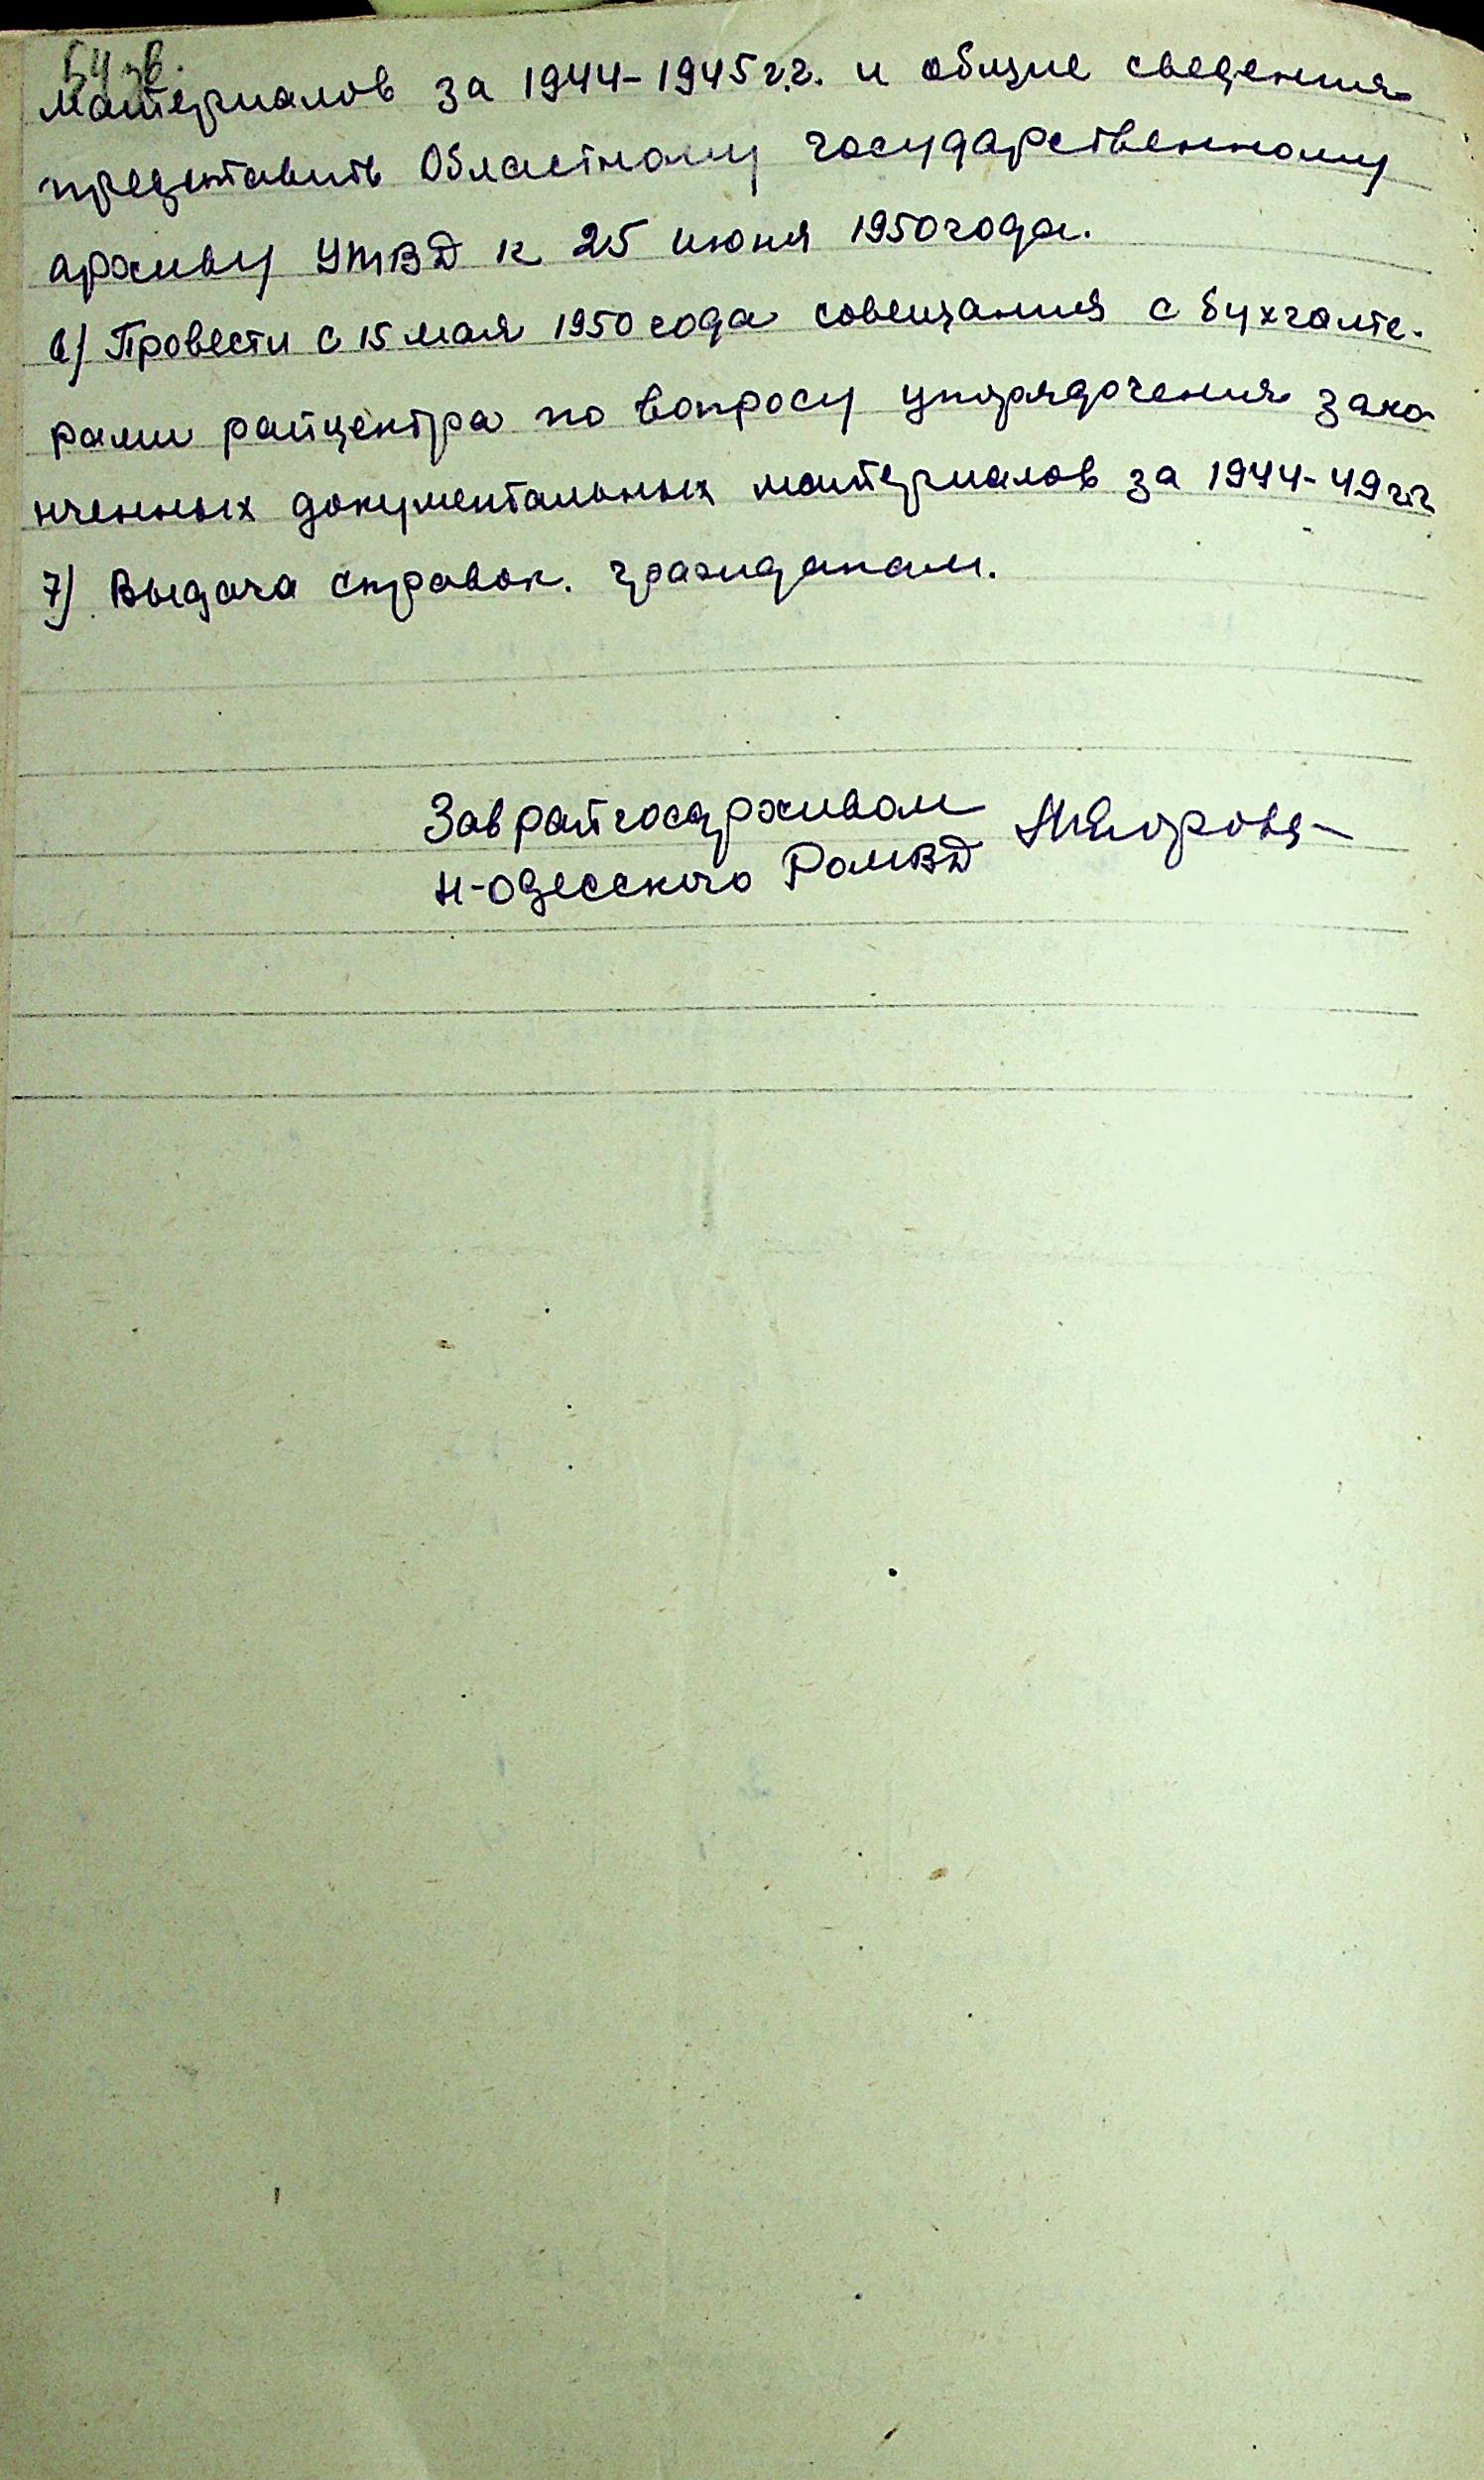 54 зв.
материалов за 1944-1945 г.г. и общие сведения
представить Областному государственному
архиву УМВД к 25 июня 1950 года.
6) Провести с 15 мая 1950 года совещания с бухгалте-
рами райцентра по вопросу упорядочения зако
нченных документальных материалов за 1944-49 г.г
7) Выдача справок. гражданам.
Зав райгосархивом
Н-Одесского РоМВД